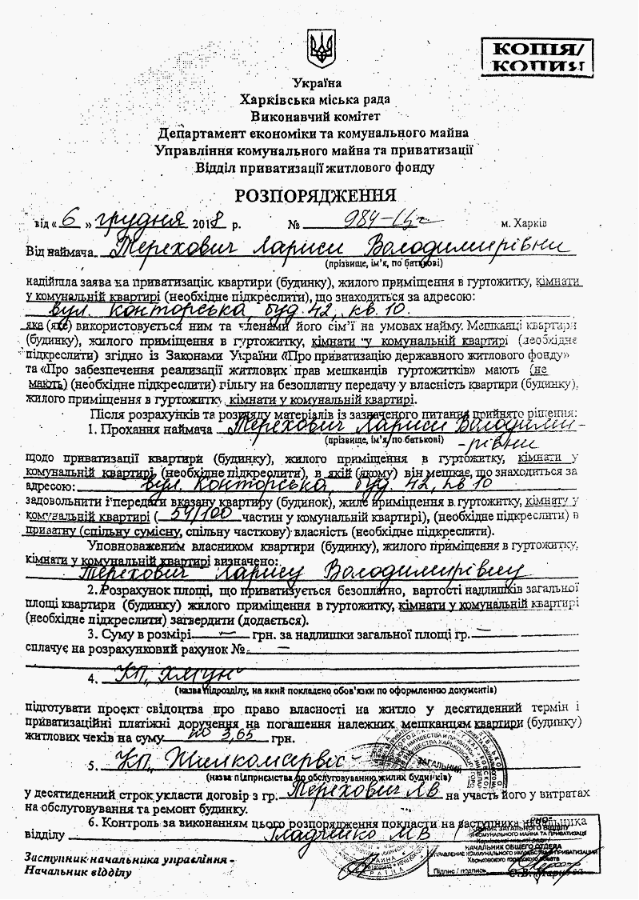 КОПІЯ/
КОПИЯ
Україна
Харківська міська рада
Виконавчий комітет
Департамент економіки та комунального майна
Управління комунального майна та приватизації
Відділ приватизації житлового фонду
РОЗПОРЯДЖЕННЯ
від « 6 » грудня 2018 р. № 984-18г м. Харків
Від наймача Терехович Лариси Володимирівни
(прізвище, ім'я, по батькові)
надійшла заява на приватизацію квартири (будинку), жилого приміщення в гуртожитку, кімнати
у комунальній квартирі (необхідне підкреслити), що знаходиться за адресою:
вул. Конторська, буд. 42, кв. 10.
яка (яке) використовується ним та членами його сім'ї на умовах найму. Мешканці квартири
(будинку), жилого приміщення в гуртожитку, кімнати у комунальній квартирі (необхідне
підкреслити) згідно із Законами України «Про приватизацію державного житлового фонду»
та «Про забезпечення реалізації житлових прав мешканців гуртожитків» мають (не
мають) (необхідне підкреслити) пільгу на безоплатну передачу у власність квартири (будинку),
жилого приміщення в гуртожитку, кімнати у комунальній квартирі.
Після розрахунків та розгляду матеріалів із зазначеного питання прийнято рішення:
1. Прохання наймача Терехович Лариси Володими-
(прізвище, ім'я, по батькові) -рівни
щодо приватизації квартири (будинку), жилого приміщення в гуртожитку, кімнати у
комунальній квартирі (необхідне підкреслити), в якій (якому) він мешкає, що знаходиться за
адресою: вул. Конторська, буд 42, кв 10
задовольнити і передати вказану квартиру (будинок), жиле приміщення в гуртожитку, кімнату у
комунальній квартирі ( 54/100 частин у комунальній квартирі), (необхідне підкреслити) в
приватну (спільну сумісну, спільну часткову) власність (необхідне підкреслити).
Уповноваженим власником квартири (будинку), жилого приміщення в гуртожитку,
кімнати у комунальній квартирі визначено:
Терехович Ларису Володимирівну
2. Розрахунок площі, що приватизується безоплатно, вартості надлишків загальної
площі квартири (будинку) жилого приміщення в гуртожитку, кімнати у комунальній квартирі
(необхідне підкреслити) затвердити (додається).
3. Суму в розмірі — грн. за надлишки загальної площі гр. —
сплачує на розрахунковий рахунок № —
4. КП „ХМГУН"
(назва підрозділу, на який покладено обов'язки по оформленню документів)
підготувати проєкт свідоцтва про право власності на житло у десятиденний термін і
приватизаційні платіжні доручення на погашення належних мешканцям квартири (будинку)
житлових чеків на суму по 3,65 грн.
5. КП „Жилкомсервіс"
(назва підприємства по обслуговуванню жилих будинків)
у десятиденний строк укласти договір з гр. Терехович ЛВ на участь його у витратах
на обслуговування та ремонт будинку.
6. Контроль за виконанням цього розпорядження покласти на заступника начальника
відділу
НАЧАЛЬНИК ЗАГАЛЬНОГО ВІДДІЛУ
НАЧАЛЬНИК ОБЩЕГО ОТДЕЛА
Підпис / подпись
Заступник начальника управління -
Начальник відділу